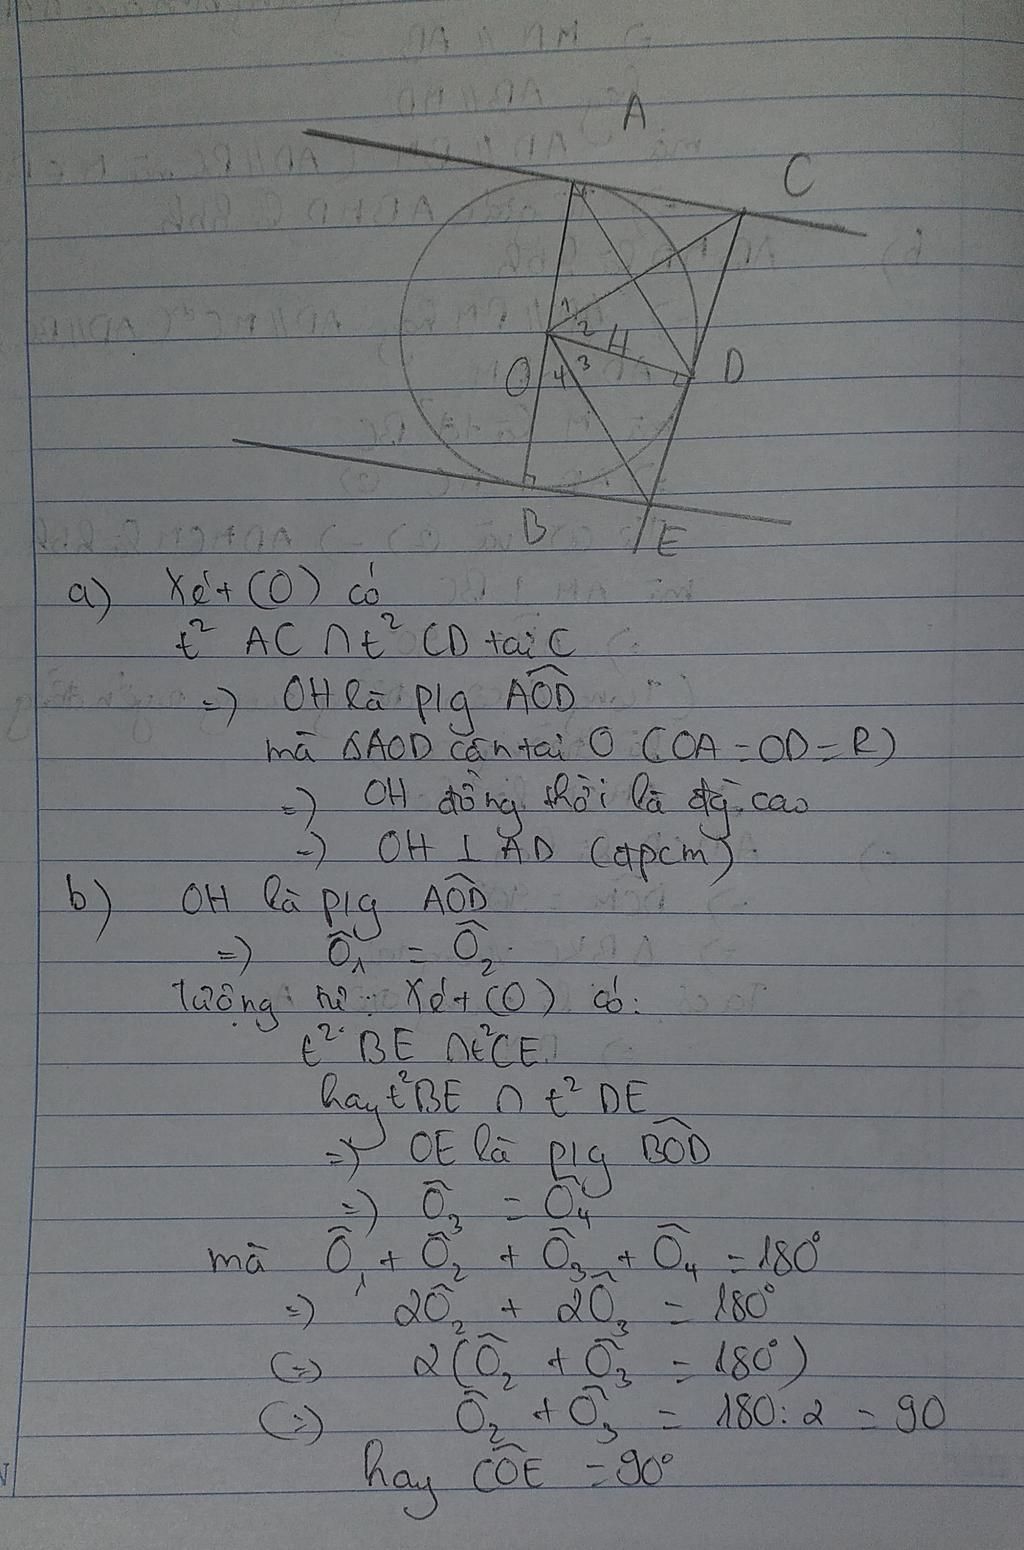 A
C
1
2
H
3
4
O
D
B
E
a) Xét (O) có
t² AC ∩ t² CD tại C
=) OH là p/g AÔD
mà ΔAOD cân tại O (OA = OD = R)
=) OH đồng thời là đg cao
=) OH ⊥ AD (đpcm)
b) OH là p/g AÔD
=) Ô₁ = Ô₂
Tương tự: Xét (O) có:
t² BE ∩ t² CE
hay t² BE ∩ t² DE
=) OE là p/g BÔD
=) Ô₃ = Ô₄
mà Ô₁ + Ô₂ + Ô₃ + Ô₄ = 180°
=) 2Ô₂ + 2Ô₃ = 180°
(=) 2(Ô₂ + Ô₃ = 180°)
(=) Ô₂ + Ô₃ = 180 : 2 = 90
hay CÔE = 90°